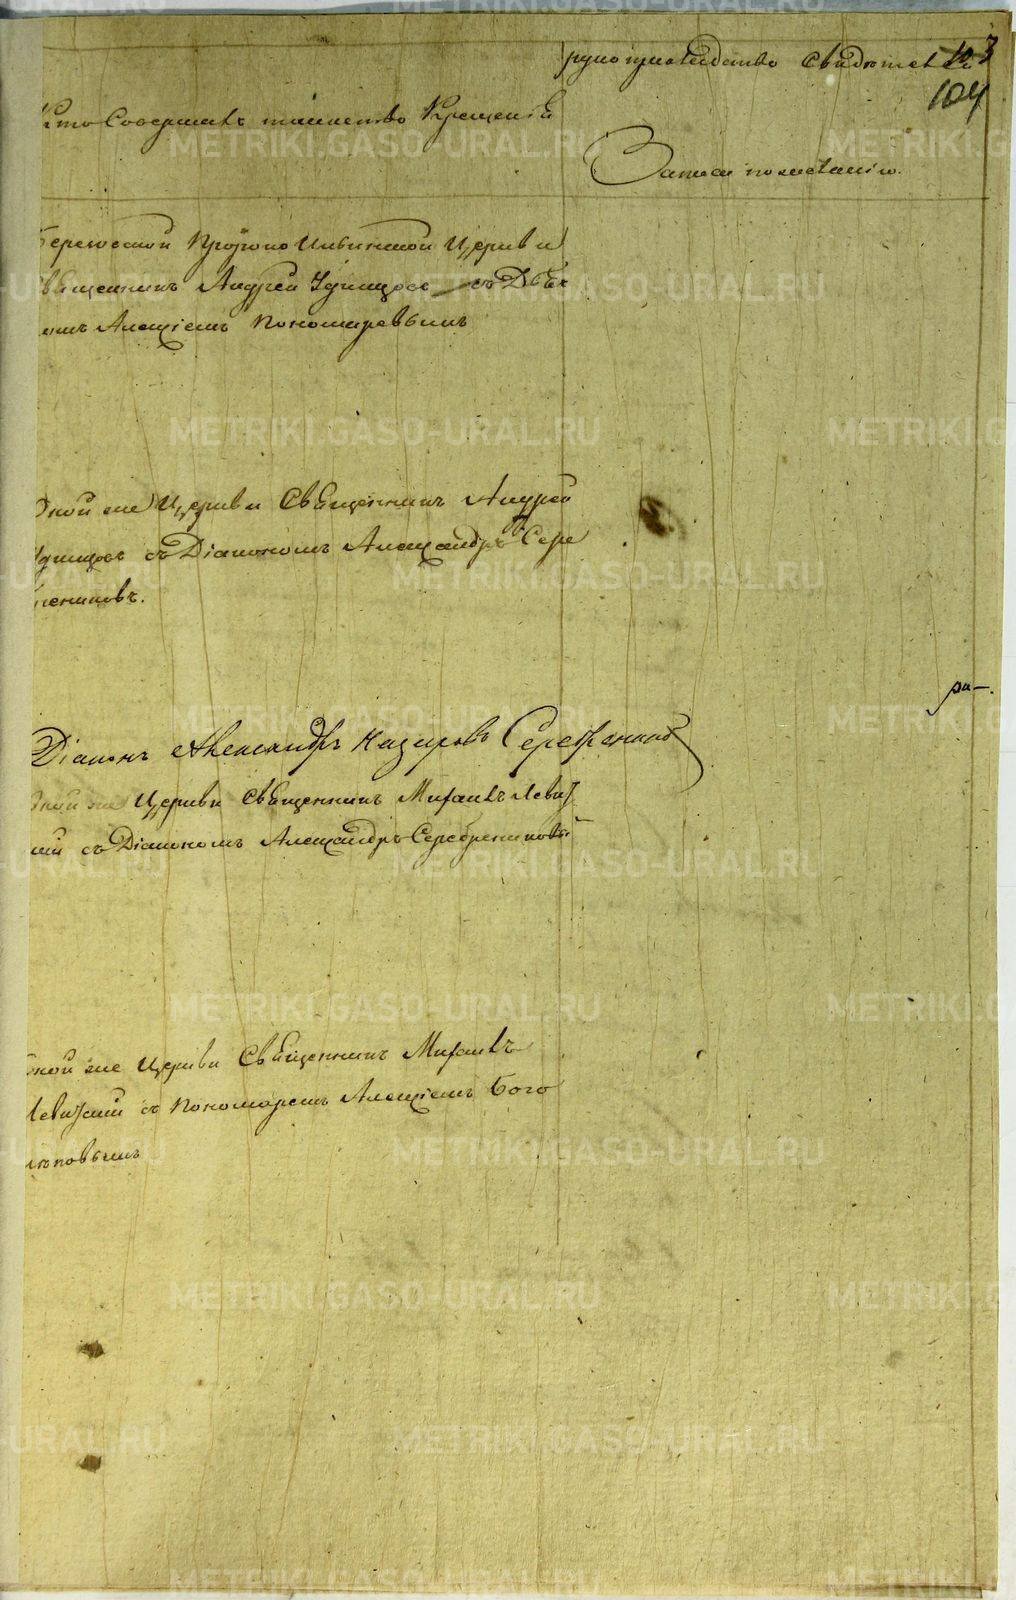 рукоприкладство свидетелей
103
104
Кто Совершалъ таинство Крещенія
Записи по желанію.
Пророко Ильинской Церкви
Священникъ Андрей Удинцовъ съ Дьяч
комъ Алексіемъ Пономаревымъ
Оной же Церкви Священникъ Андрей
Удинцовъ съ Діакономъ Александръ Сере
бренниковъ.
Діаконъ Александръ Назаровъ Серебренник
Оной же Церкви Священникъ Михаилъ Левиц
кій съ Діакономъ Александръ Серебрениковы
Оной же Церкви Священникъ Михаилъ
Левицкій съ Пономаремъ Алексіемъ Бого